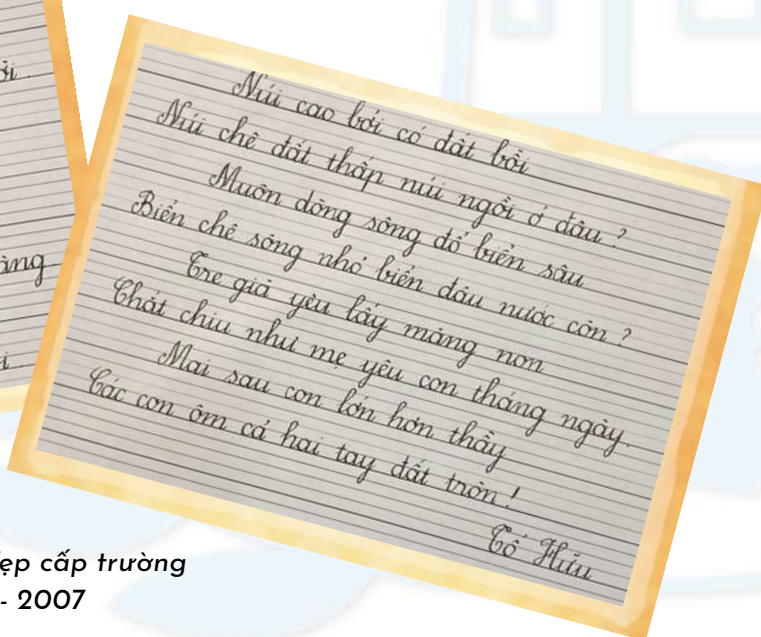 ởi.
àng
i.
Núi cao bởi có đất bồi
Núi chê đất thấp núi ngồi ở đâu?
Muôn dòng sông đổ biển sâu
Biển chê sông nhỏ biển đâu nước còn?
Tre già yêu lấy măng non
Chắt chiu như mẹ yêu con tháng ngày.
Mai sau con lớn hơn thầy
Các con ôm cả hai tay đất tròn!
Tố Hữu
ẹp cấp trường
- 2007